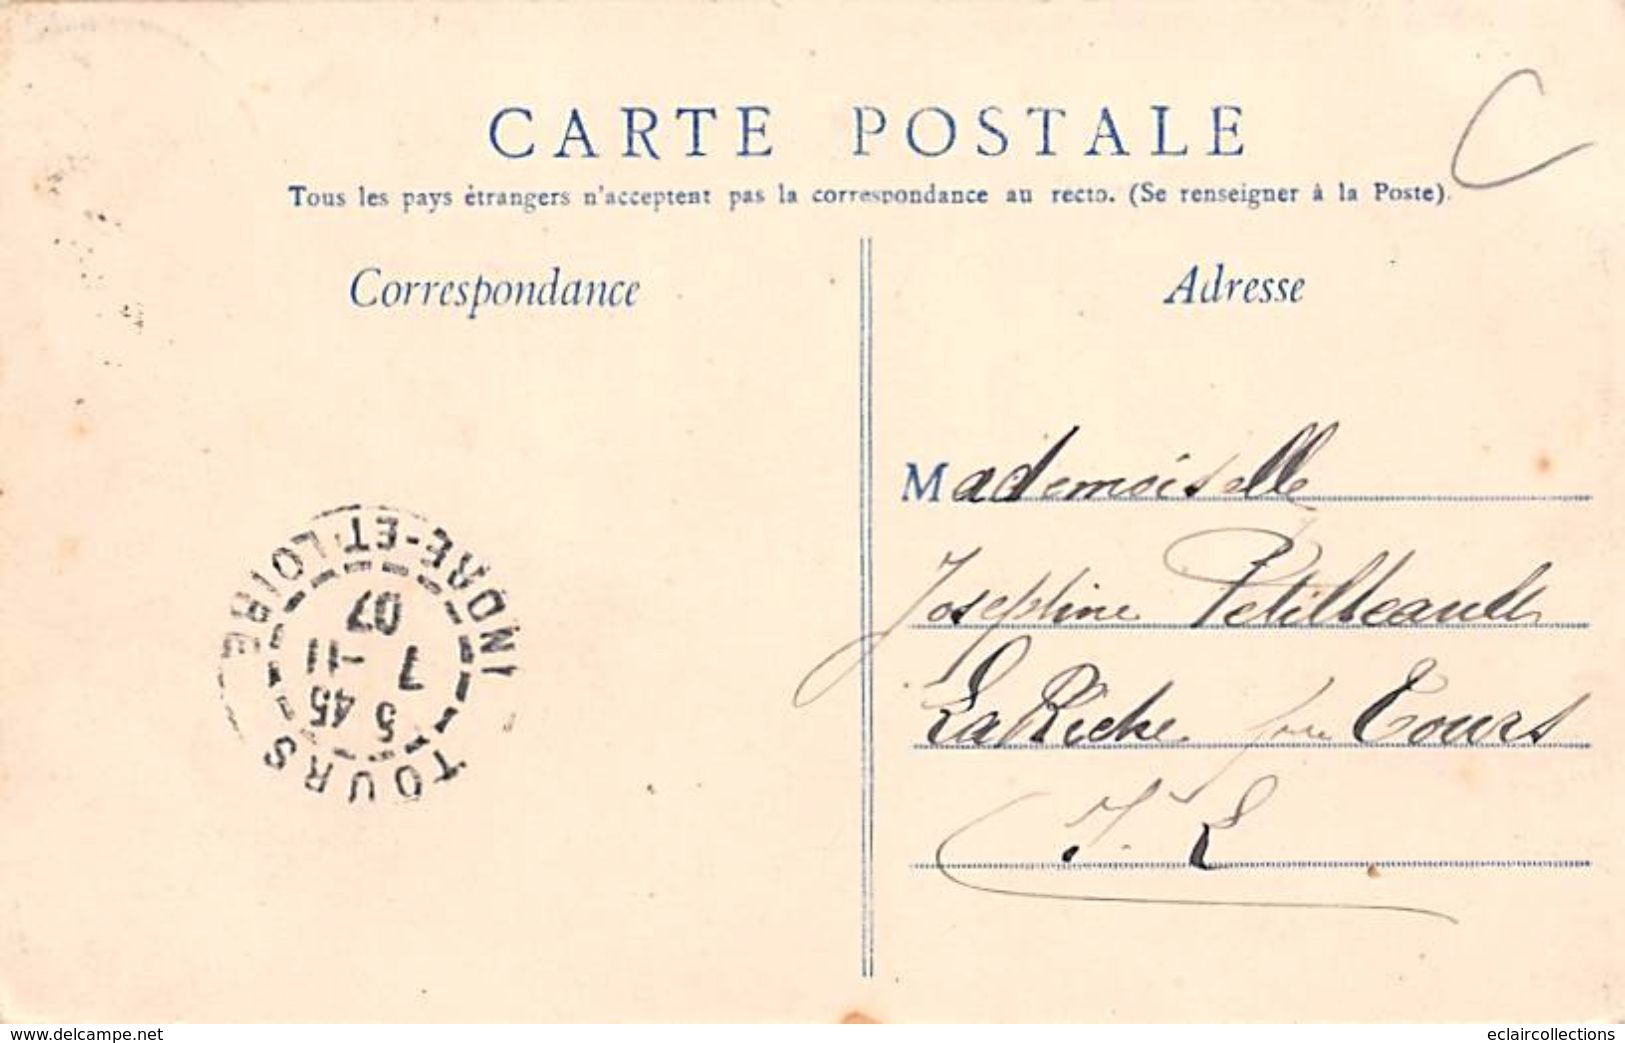 CARTE POSTALE
Tous les pays étrangers n'acceptent pas la correspondance au recto. (Se renseigner à la Poste).
Correspondance
Adresse
Mademoiselle
Joséphine Petitbeault
La Riche près Tours
I. L
TOURS
5 45
7 -11
07
INDRE-ET-LOIRE
www.delcampe.net
eclaircollections